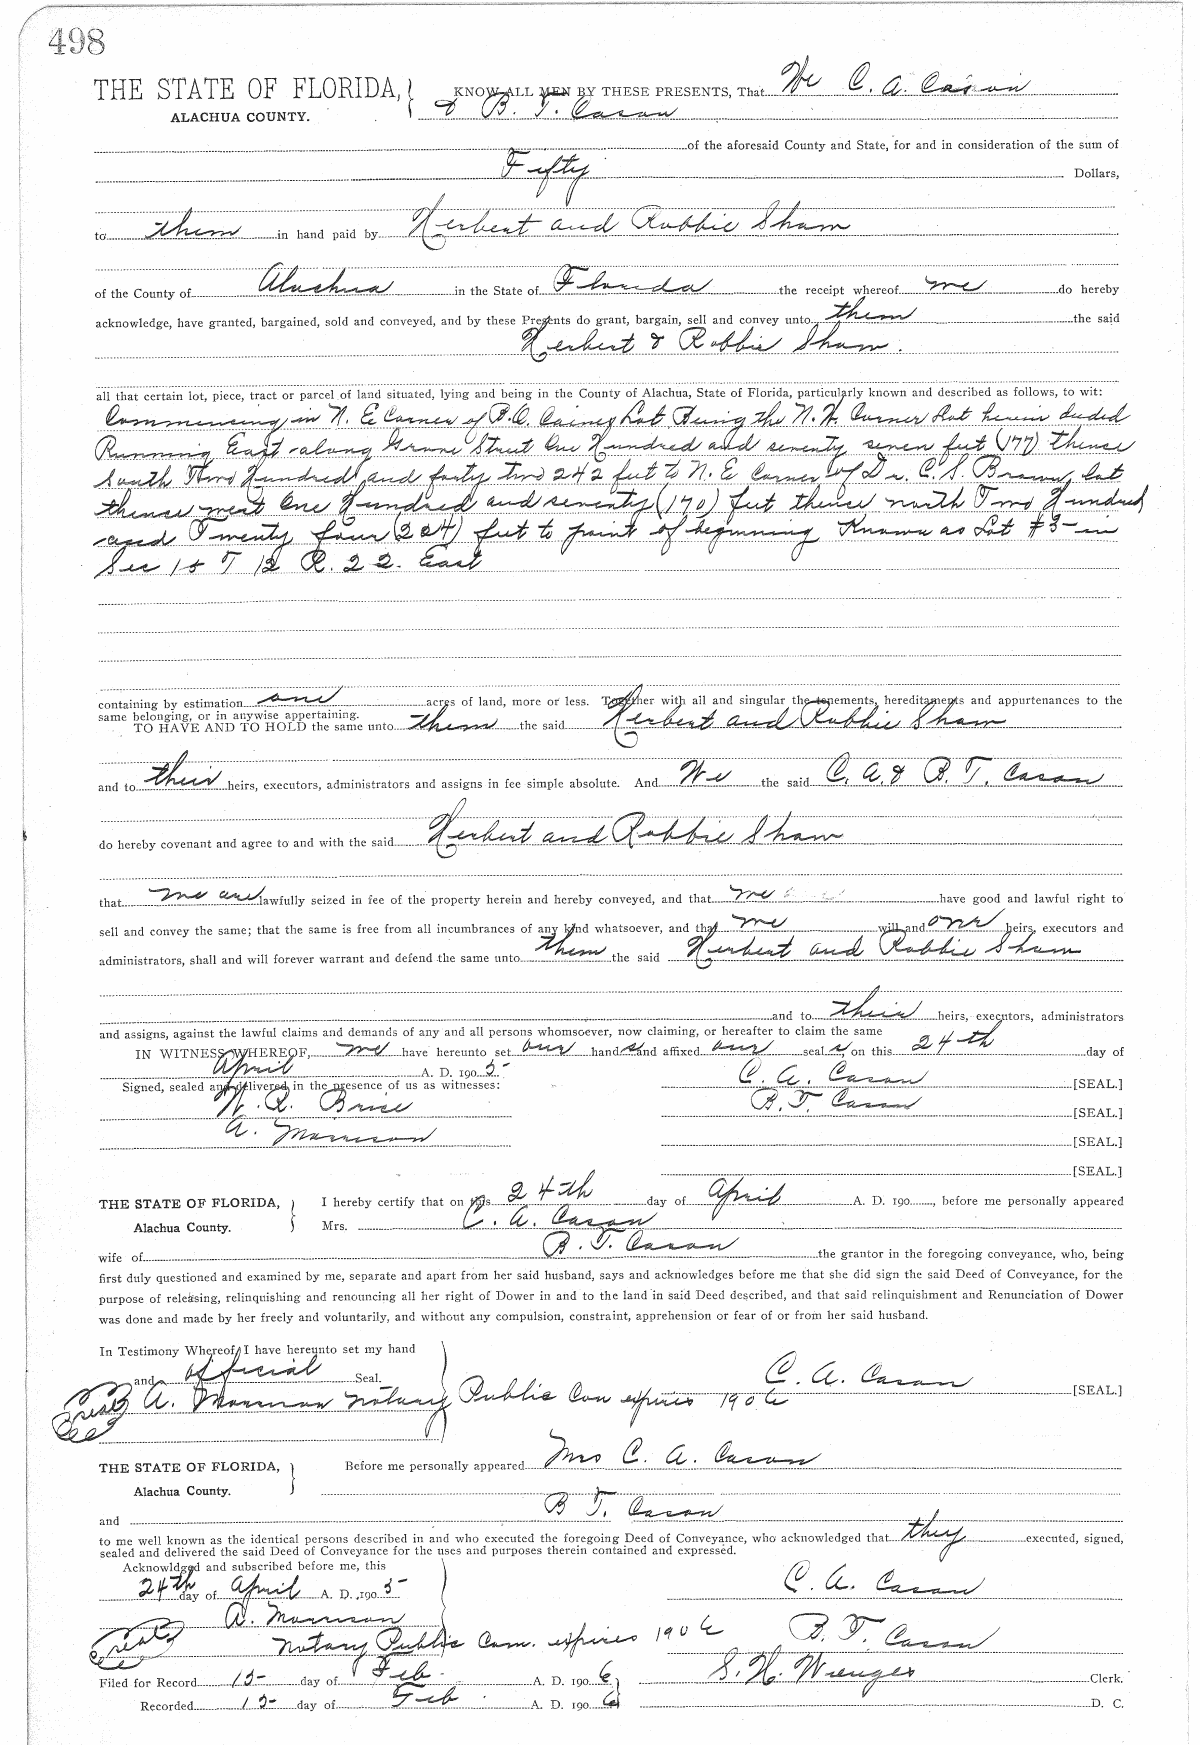 498
THE STATE OF FLORIDA, KNOW ALL MEN BY THESE PRESENTS, That We C. A. Cason
ALACHUA COUNTY. & B. T. Cason
of the aforesaid County and State, for and in consideration of the sum of
Fifty Dollars,
to them in hand paid by Herbert and Robbie Sham
of the County of Alachua in the State of Florida the receipt whereof we do hereby
acknowledge, have granted, bargained, sold and conveyed, and by these Presents do grant, bargain, sell and convey unto them the said
Herbert & Robbie Sham.
all that certain lot, piece, tract or parcel of land situated, lying and being in the County of Alachua, State of Florida, particularly known and described as follows, to wit:
Commencing in N. E Corner of Lot Being the N. W. Corner Lot herein deded
Running East along Street One Hundred and seventy seven feet (177) thence
South Two Hundred and forty two 242 feet to N. E Corner of Dr. C. S. Brown lot
thence west One Hundred and seventy (170) feet thence north Two Hundred
and Twenty four (224) feet to point of beginning Known as Lot #3 in
Sec 15 T 12 R. 22. East
containing by estimation one acres of land, more or less. Together with all and singular the tenements, hereditaments and appurtenances to the
same belonging, or in anywise appertaining.
TO HAVE AND TO HOLD the same unto them the said Herbert and Robbie Sham
and to their heirs, executors, administrators and assigns in fee simple absolute. And We the said C. A. & B. T. Cason
do hereby covenant and agree to and with the said Herbert and Robbie Sham
that we are lawfully seized in fee of the property herein and hereby conveyed, and that we have good and lawful right to
sell and convey the same; that the same is free from all incumbrances of any kind whatsoever, and that we will and our heirs, executors and
administrators, shall and will forever warrant and defend the same unto them the said Herbert and Robbie Sham
and to their heirs, executors, administrators
and assigns, against the lawful claims and demands of any and all persons whomsoever, now claiming, or hereafter to claim the same
IN WITNESS WHEREOF, we have hereunto set our hands and affixed our seals, on this 24th day of
April A. D. 1905 C. A. Cason [SEAL.]
Signed, sealed and delivered in the presence of us as witnesses:
W. R. Brice B. T. Cason [SEAL.]
A. Morrison [SEAL.]
[SEAL.]
THE STATE OF FLORIDA, I hereby certify that on this 24th day of April A. D. 190, before me personally appeared
Alachua County. Mrs. C. A. Cason
wife of B. T. Cason the grantor in the foregoing conveyance, who, being
first duly questioned and examined by me, separate and apart from her said husband, says and acknowledges before me that she did sign the said Deed of Conveyance, for the
purpose of releasing, relinquishing and renouncing all her right of Dower in and to the land in said Deed described, and that said relinquishment and Renunciation of Dower
was done and made by her freely and voluntarily, and without any compulsion, constraint, apprehension or fear of or from her said husband.
In Testimony Whereof, I have hereunto set my hand
and official Seal. C. A. Cason [SEAL.]
Seal A. Morrison Notary Public Com expires 1906
THE STATE OF FLORIDA, Before me personally appeared Mrs C. A. Cason
Alachua County.
and B T. Cason
to me well known as the identical persons described in and who executed the foregoing Deed of Conveyance, who acknowledged that they executed, signed,
sealed and delivered the said Deed of Conveyance for the uses and purposes therein contained and expressed.
Acknowldged and subscribed before me, this
24th day of April A. D. 1905 C. A. Cason
A. Morrison
Seal Notary Public Com. expires 1906 B. T. Cason
Filed for Record 15 day of Feb. A. D. 1906 S. H. Wienges Clerk.
Recorded 15 day of Feb. A. D. 1906 D. C.